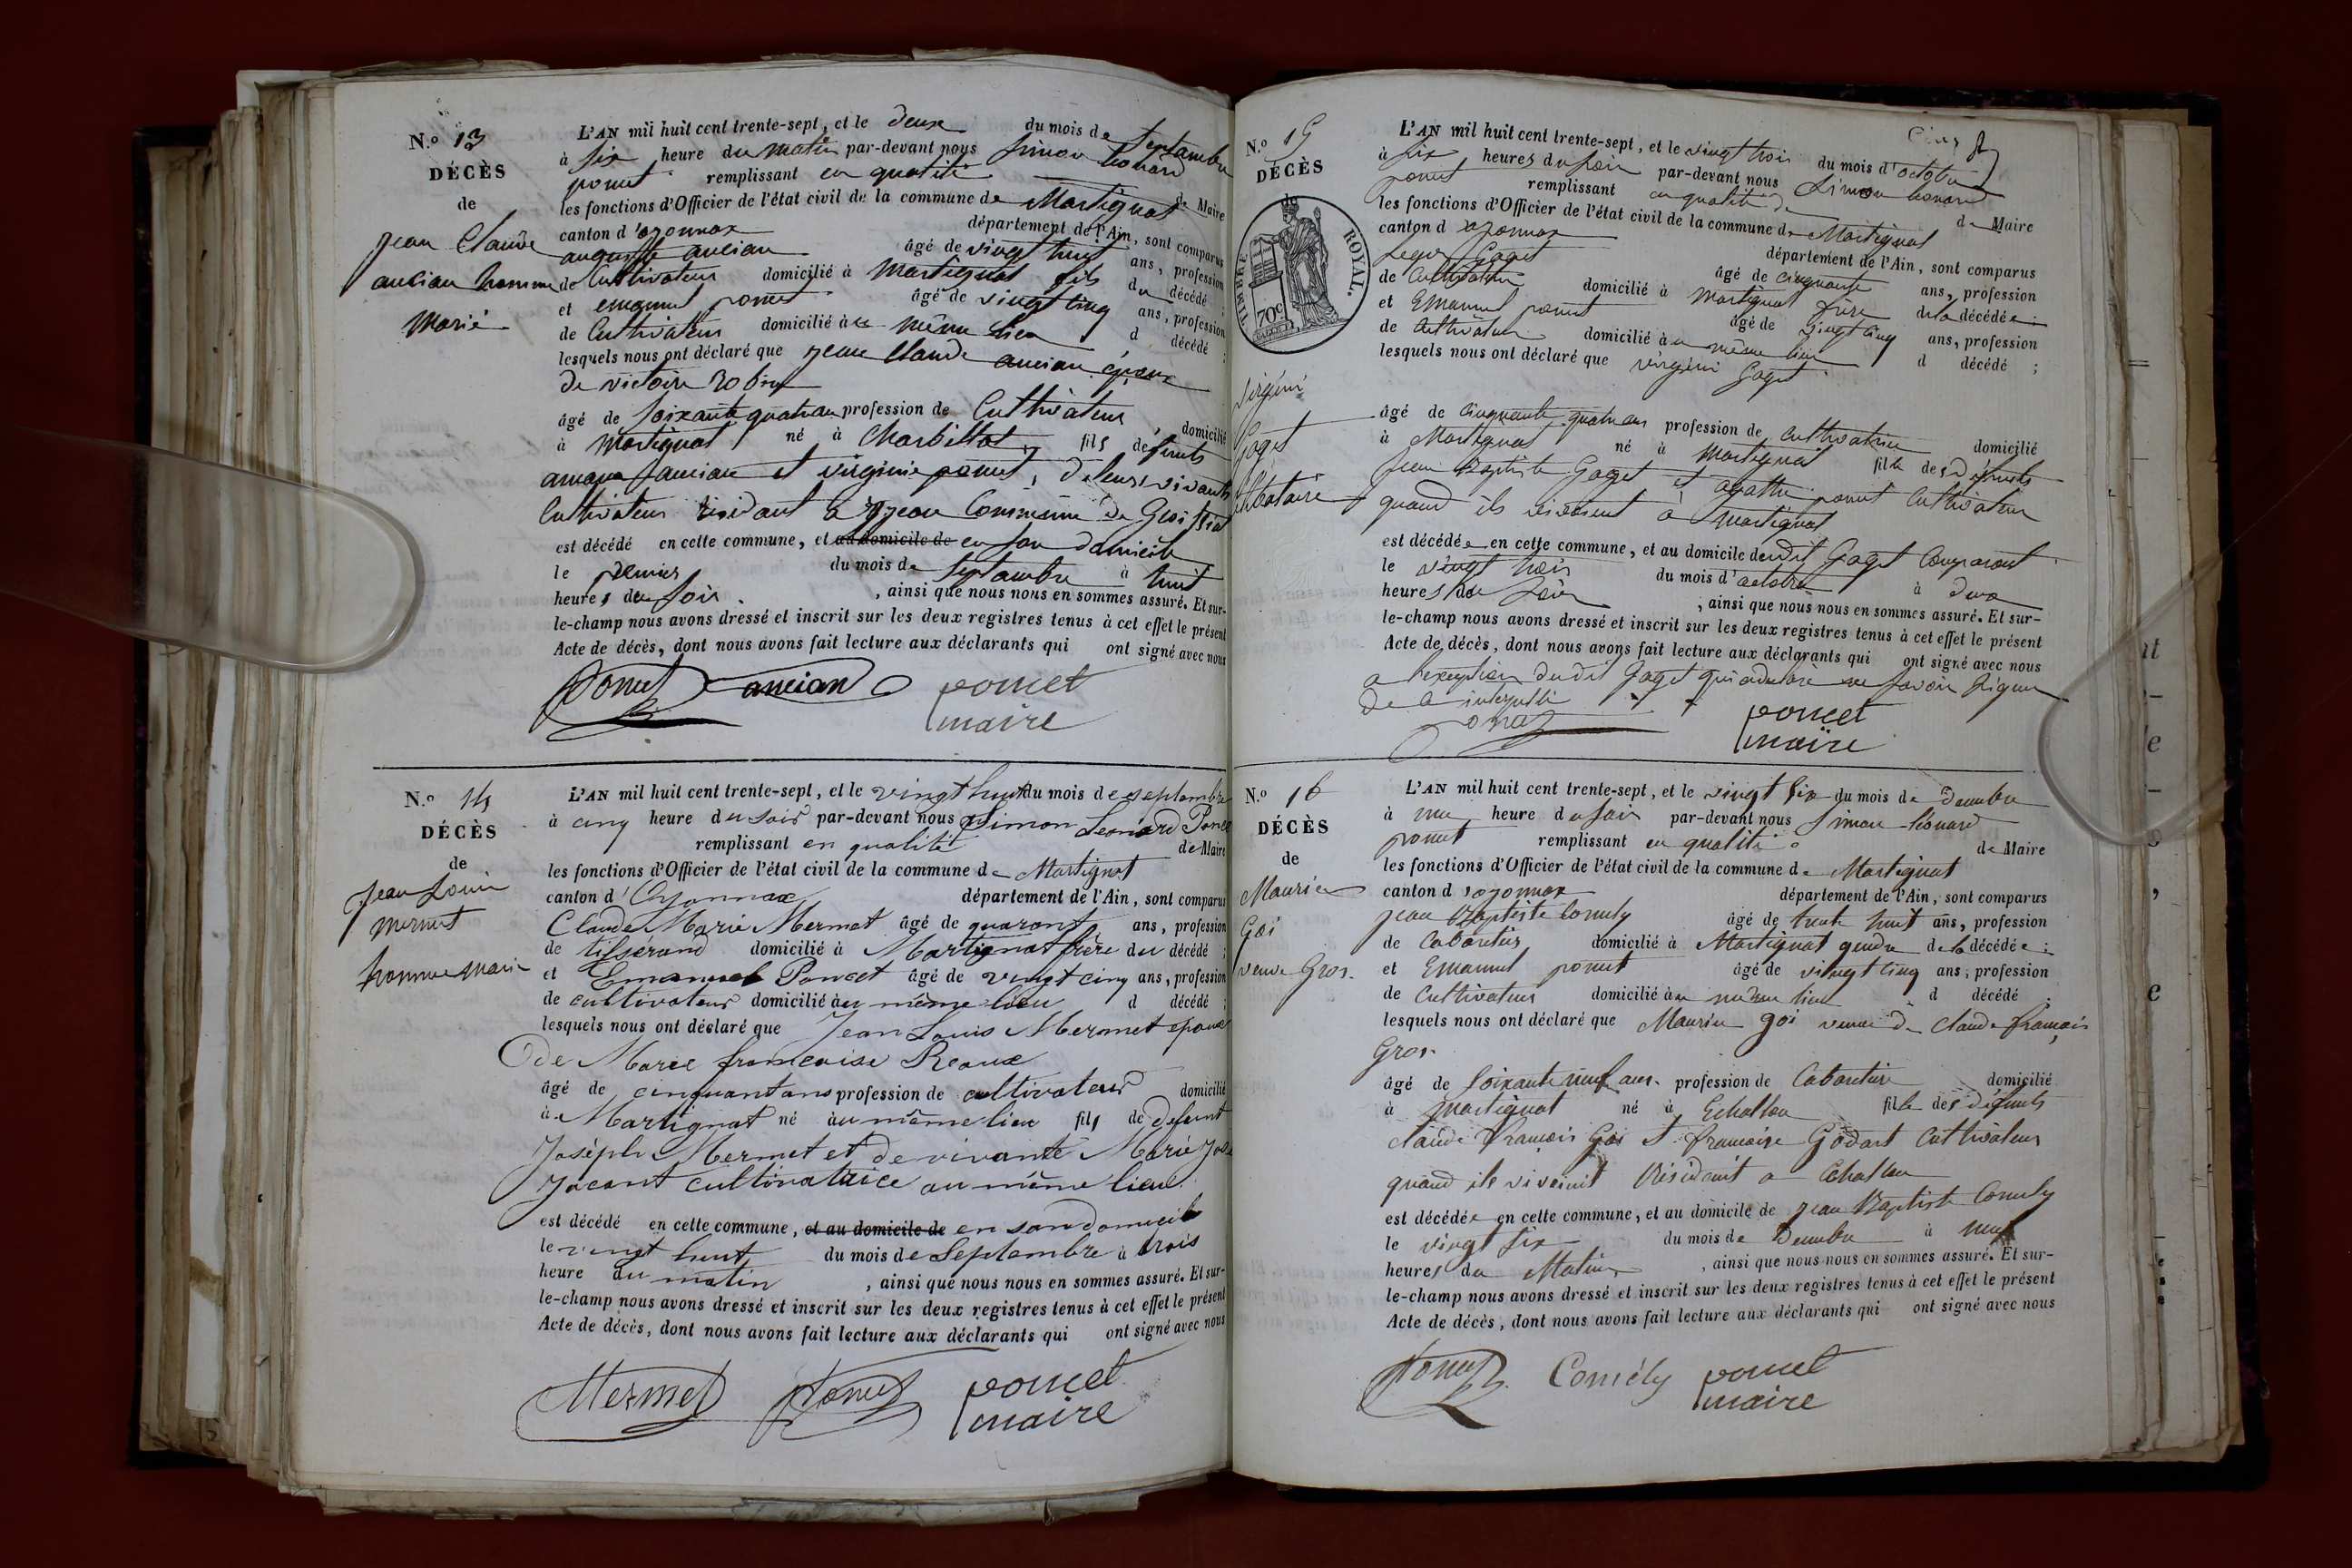 N.o 13
DÉCÈS
de
jean Claude
ancian homme
Marié
L'AN mil huit cent trente-sept, et le deux du mois de septambre
à six heure du matin par-devant nous simon léonard
poncet remplissant en qualité de Maire
les fonctions d'Officier de l'état civil de la commune de Martignat
canton d'oyonnax département de l'Ain, sont comparus
auguste ancian âgé de vingt huit ans, profession
de Cultivateur domicilié à Martignat fils du décédé ;
et emanuel poncet âgé de vingt cinq ans, profession
de Cultivateur domicilié à ce même lieu d décédé ;
lesquels nous ont déclaré que jean Claude ancian époux
de victoire Robin
âgé de soixante quatre ans profession de Cultivateur domicilié
à Martignat né à Charbillat fils de défunts
ancian et virginie poncet, de leurs vivants
Cultivateur résidant à Commune de Groissiat
est décédé en cette commune, et au domicile de en son domicile
le premier du mois de Septambre à huit
heures du soir , ainsi que nous nous en sommes assuré. Et sur-
le-champ nous avons dressé et inscrit sur les deux registres tenus à cet effet le présent
Acte de décès, dont nous avons fait lecture aux déclarants qui ont signé avec nous
Poncet ancian poncet
maire
N.o 14
DÉCÈS
de
Jean Louis
mermet
homme marié
L'AN mil huit cent trente-sept, et le vingt huit du mois de septembre
à cinq heure du soir par-devant nous Simon Leonard Poncet
remplissant en qualité de Maire
les fonctions d'Officier de l'état civil de la commune de Martignat
canton d'Oyonnax département de l'Ain, sont comparus
Claude Marie Mermet âgé de quarant ans, profession
de tisserand domicilié à Martignat frère du décédé ;
et Emanuel Poncet âgé de vingt cinq ans, profession
de cultivateur domicilié au même lieu d décédé ;
lesquels nous ont déclaré que Jean Louis Mermet epoux
de Marie francoise Reaux
âgé de cinquant ans profession de cultivateur domicilié
à Martignat né au même lieu fils de defunt
Joséph Mermet et de vivante Marie
Jacant cultivatrice au même lieu
est décédé en cette commune, et au domicile de en son domicile
le vingt huit du mois de Septembre à trois
heure du matin , ainsi que nous nous en sommes assuré. Et sur-
le-champ nous avons dressé et inscrit sur les deux registres tenus à cet effet le présent
Acte de décès, dont nous avons fait lecture aux déclarants qui ont signé avec nous
Mermet Poncet poncet
maire
N.o 15
DÉCÈS
de
TIMBRE ROYAL.
70c
virginie
Goget
célibataire
L'AN mil huit cent trente-sept, et le vingt trois du mois d'octobre
à six heures du soir par-devant nous Simon léonard
poncet remplissant en qualité de Maire
les fonctions d'Officier de l'état civil de la commune de Martignat
canton d oyonnax département de l'Ain, sont comparus
Goget âgé de cinquante ans, profession
de Cultivateur domicilié à Martignat frère de la décédée ;
et Emanuel poncet âgé de vingt cinq ans, profession
de Cultivateur domicilié au même lieu d décédé ;
lesquels nous ont déclaré que virginie Goget
âgé de cinquante quatre ans profession de cultivatrice domicilié
à Martignat né à Martignat fille des défunts
Jean Baptiste Goget et agathe poncet Cultivateur
quand ils vivaient à Martignat
est décédée en cette commune, et au domicile de dudit Goget Comparant
le vingt trois du mois d'octobre à deux
heures du soir , ainsi que nous nous en sommes assuré. Et sur-
le-champ nous avons dressé et inscrit sur les deux registres tenus à cet effet le présent
Acte de décès, dont nous avons fait lecture aux déclarants qui ont signé avec nous
a l'exeption dudit Goget qui a déclaré ne savoir signer
de ce interpellé
Poncet poncet
maire
N.o 16
DÉCÈS
de
Maurise
Goi
veuve Gros.
L'AN mil huit cent trente-sept, et le vingt six du mois de Decembre
à une heure du soir par-devant nous Simon léonard
poncet remplissant en qualité de Maire
les fonctions d'Officier de l'état civil de la commune de Martignat
canton d'oyonnax département de l'Ain, sont comparus
jean Baptiste Comély âgé de trente huit ans, profession
de Cabartier domicilié à Martignat gendre de la décédée ;
et Emanuel poncet âgé de vingt cinq ans, profession
de Cultivateur domicilié au même lieu d décédé ;
lesquels nous ont déclaré que Maurise Goi veuve de Claude françois
Gros.
âgé de soixante neuf ans. profession de Cabartière domicilié
à Martignat né à Echallon fille des défunts
claude françois Goi et francoise Godart Cultivateur
quand ils vivaient Résidant a Echallon
est décédée en cette commune, et au domicile de jean Baptiste Comély
le vingt six du mois de Decembre à neuf
heures du Matin , ainsi que nous nous en sommes assuré. Et sur-
le-champ nous avons dressé et inscrit sur les deux registres tenus à cet effet le présent
Acte de décès, dont nous avons fait lecture aux déclarants qui ont signé avec nous
Poncet Comély poncet
maire